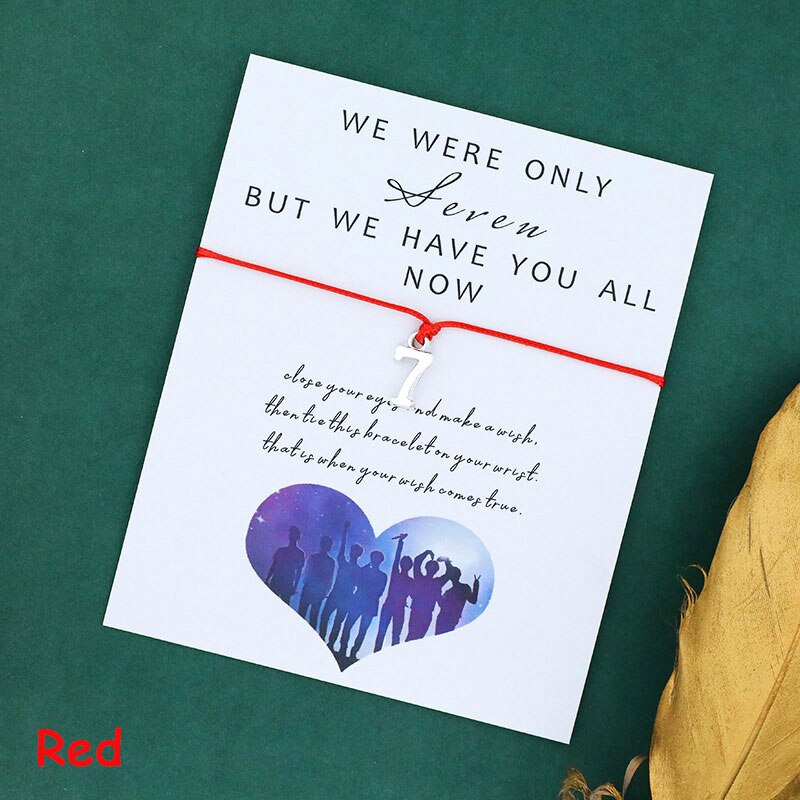 WE WERE ONLY
Seven
BUT WE HAVE YOU ALL
NOW
7
close your eyes and make a wish,
then tie this bracelet on your wrist.
that is when your wish comes true.
Red